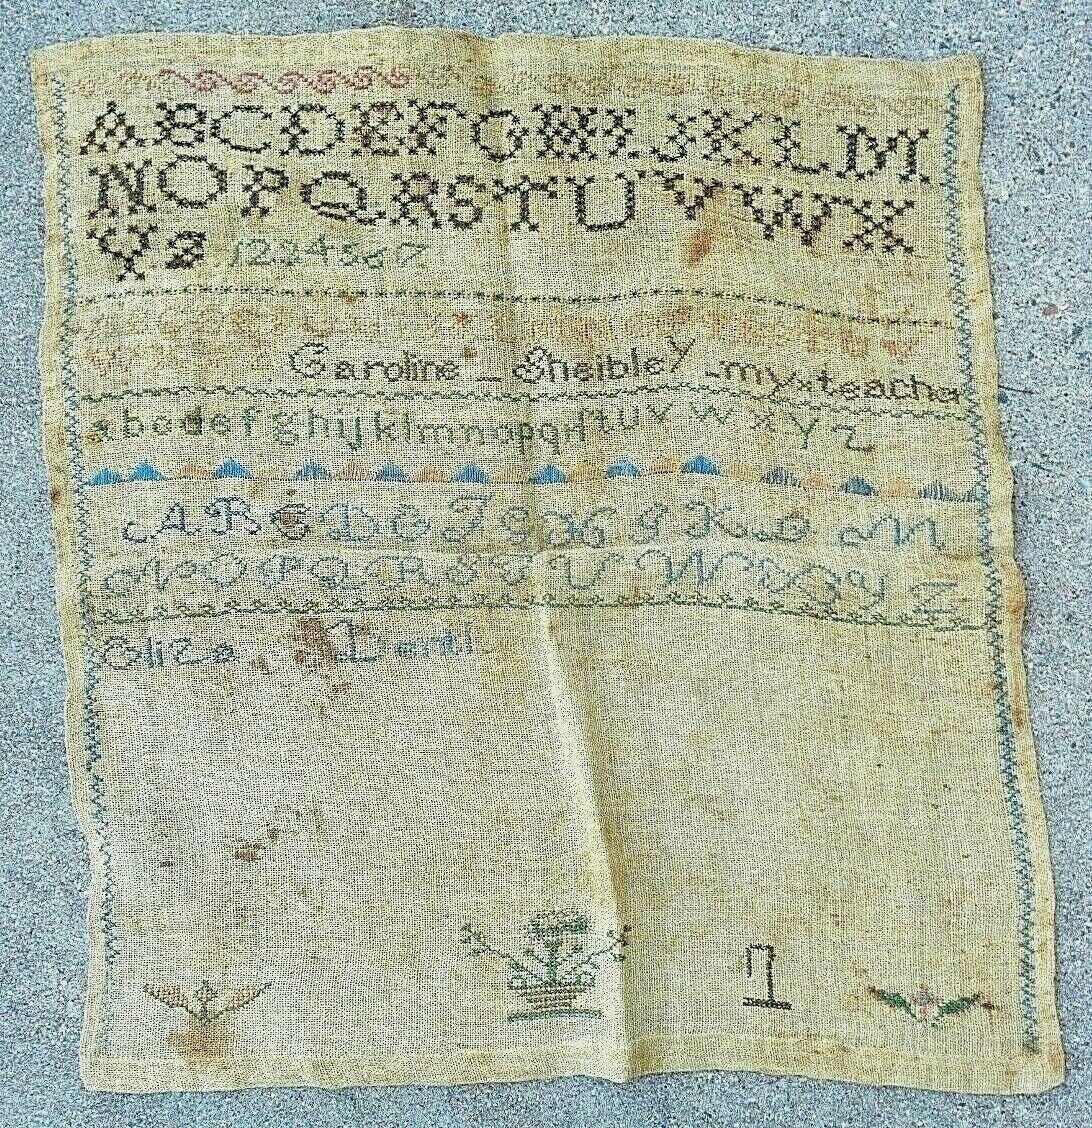 ABCDEFGHIJKLM
NOPQRSTUVWX
YZ 1234567
Caroline Sheibley my x teacher
abcdefghijklmnopqrstuvwxyz
ABCDEFGHIJKLM
NOPQRSTUVWXYZ
Eliza